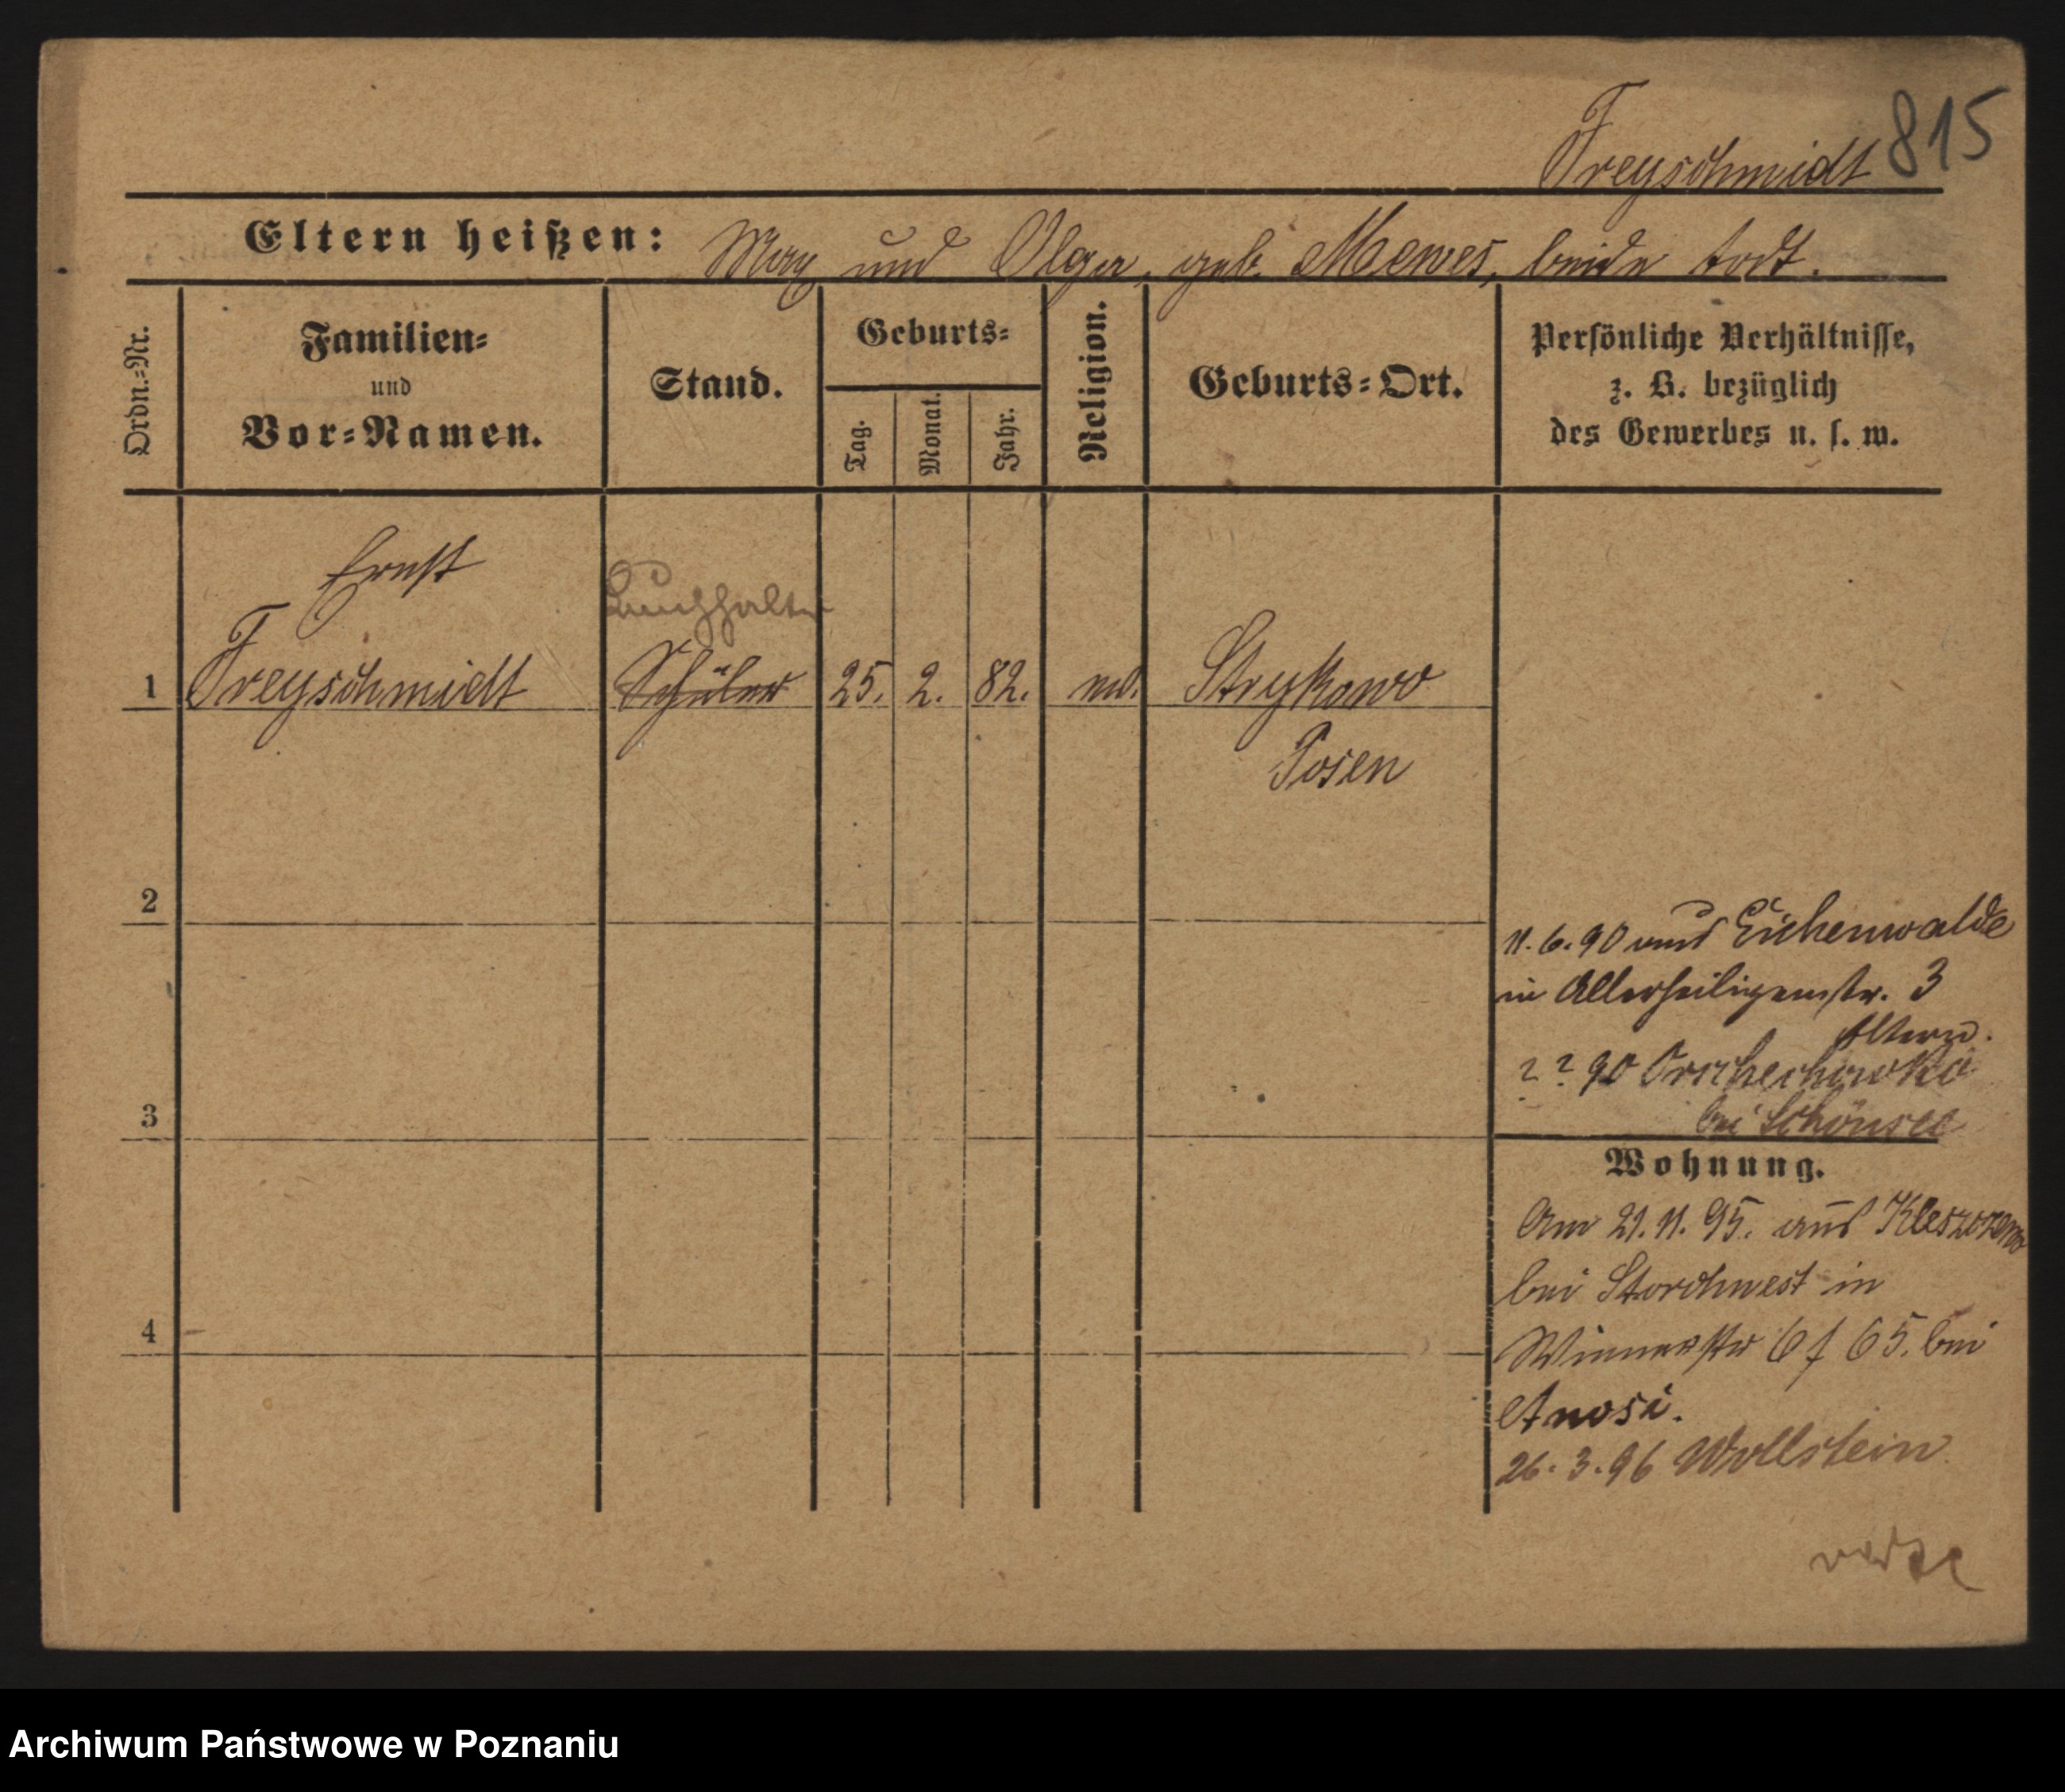 Freyschmidt 815
Eltern heißen: Max und Olga, geb. Mewes, beide todt.
Ordn.-Nr.
Familien-
und
Vor-Namen.
Stand.
Geburts-
Tag.
Monat.
Jahr.
Religion.
Geburts-Ort.
Persönliche Verhältnisse,
z. B. bezüglich
des Gewerbes u. s. w.
Ernst
Buchhalter
1 Freyschmidt Schüler 25. 2. 82. Strykowo
Posen
2
11. 6. 90 aus Eichenwalde
in Allerheiligenstr. 3
Eltern.
? ? 90
bei Schönsee
3
Wohnung.
Am 21. 11. 95. aus
bei Storchnest in
4
65. bei
26. 3. 96 Wollstein
Archiwum Państwowe w Poznaniu